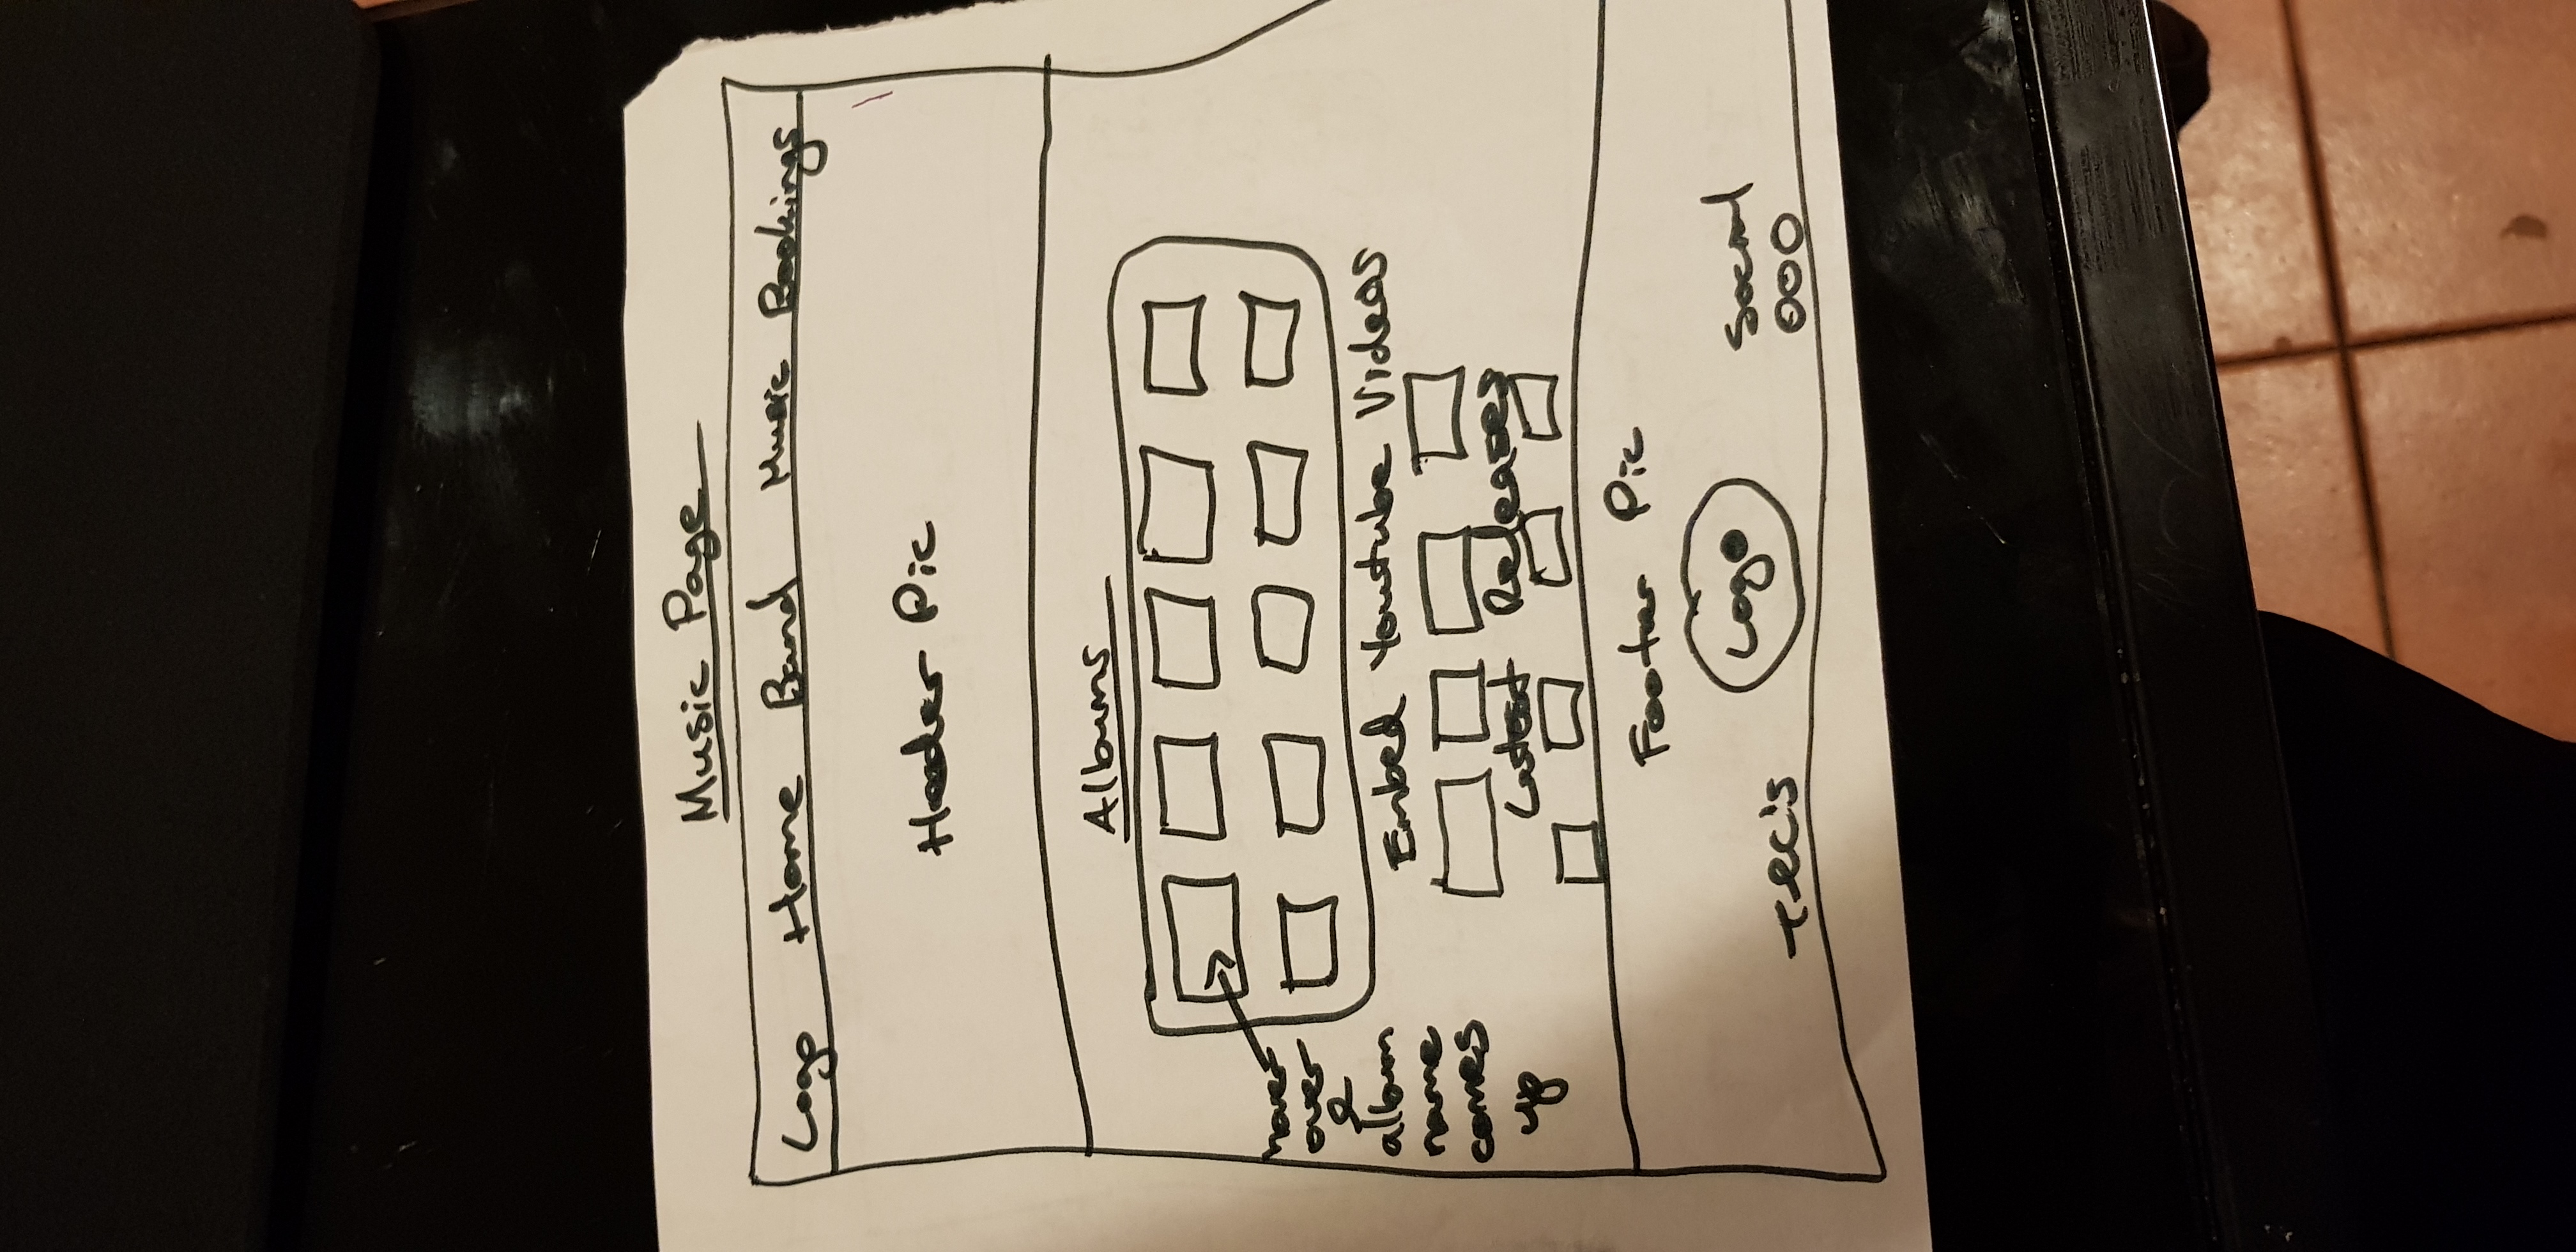 Music Page
Logo Home Band Music Bookings
Header Pic
Albums
hover
over
&
album
name
comes
up
Embed Youtube Videos
Latest Releases
Footer Pic
Logo
Social